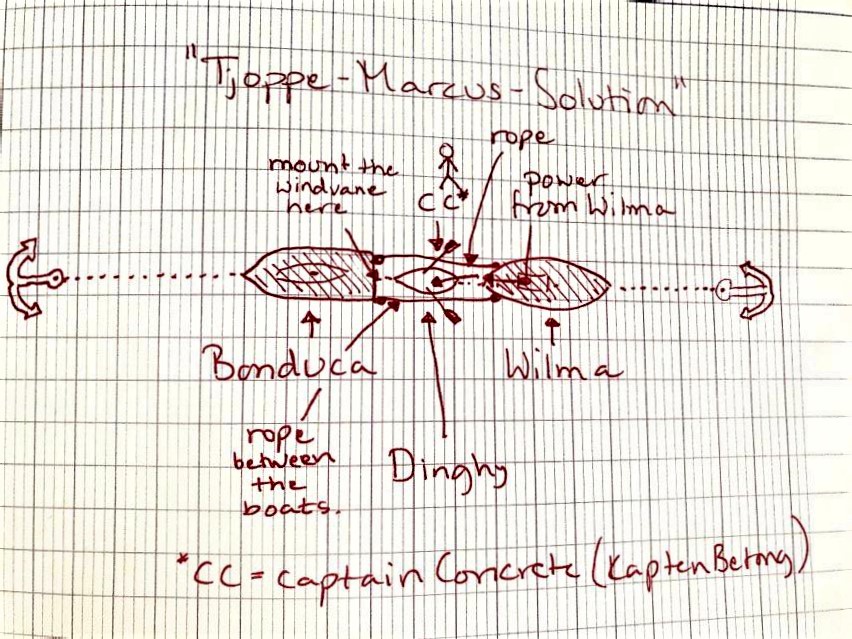 "Tjoppe-Marcus-Solution"
rope
mount the
windvane
here
CC*
power
from Wilma
Bonduca
Wilma
rope
between
the
boats.
Dinghy
*CC = Captain Concrete (Kapten Betong)